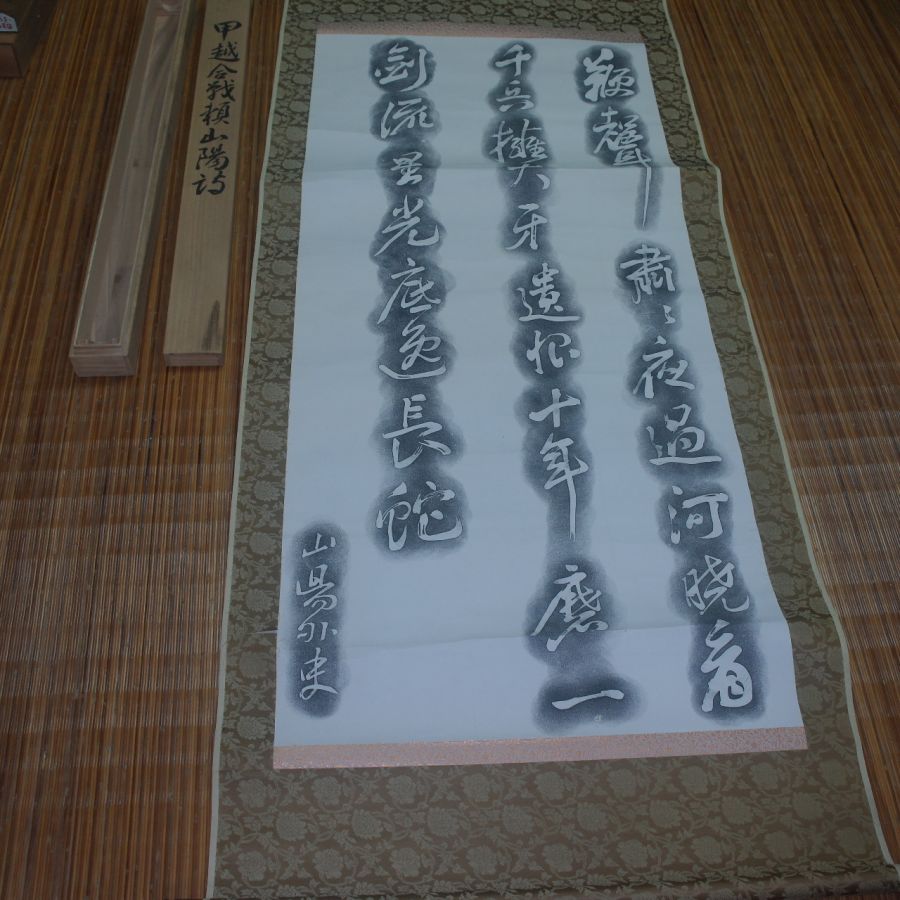 鞭聲肅〻夜過河曉看
千兵擁大牙遺恨十年磨一
劍流星光底逸長蛇
山陽外史
甲越合戦頼山陽詩